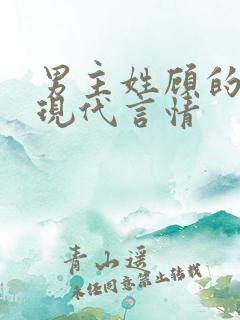 男主姓顾的
现代言情
青山遥
未经同意禁止转载